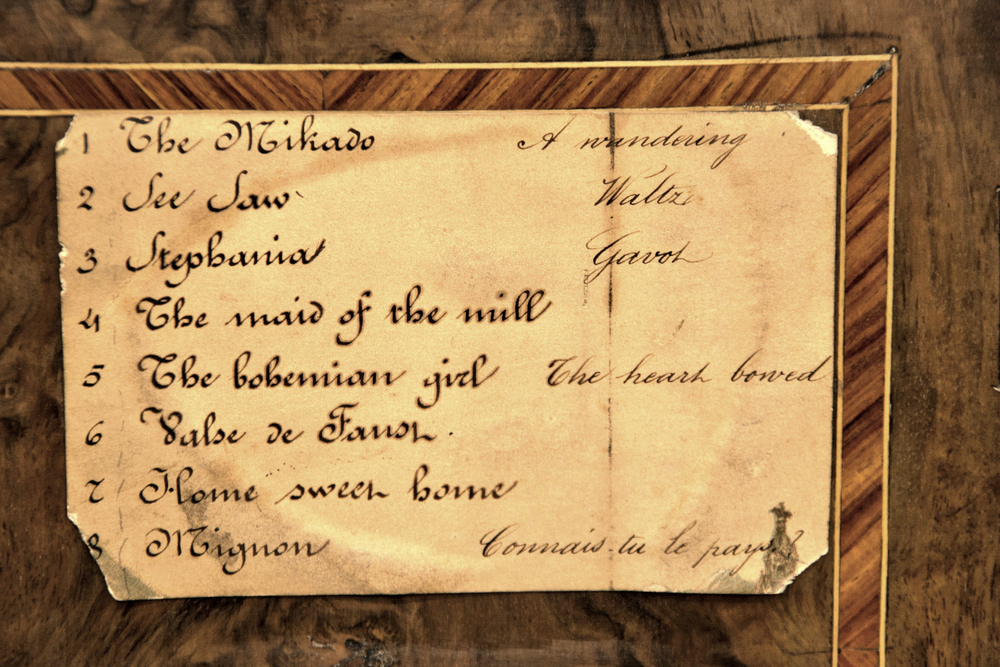 1 The Mikado A wandering
2 See Saw Waltz
3 Stephania Gavot
4 The maid of the mill
5 The bohemian girl The heart bowed
6 Valse de Faust.
7 Home sweet home
8 Mignon Connais-tu le pays?